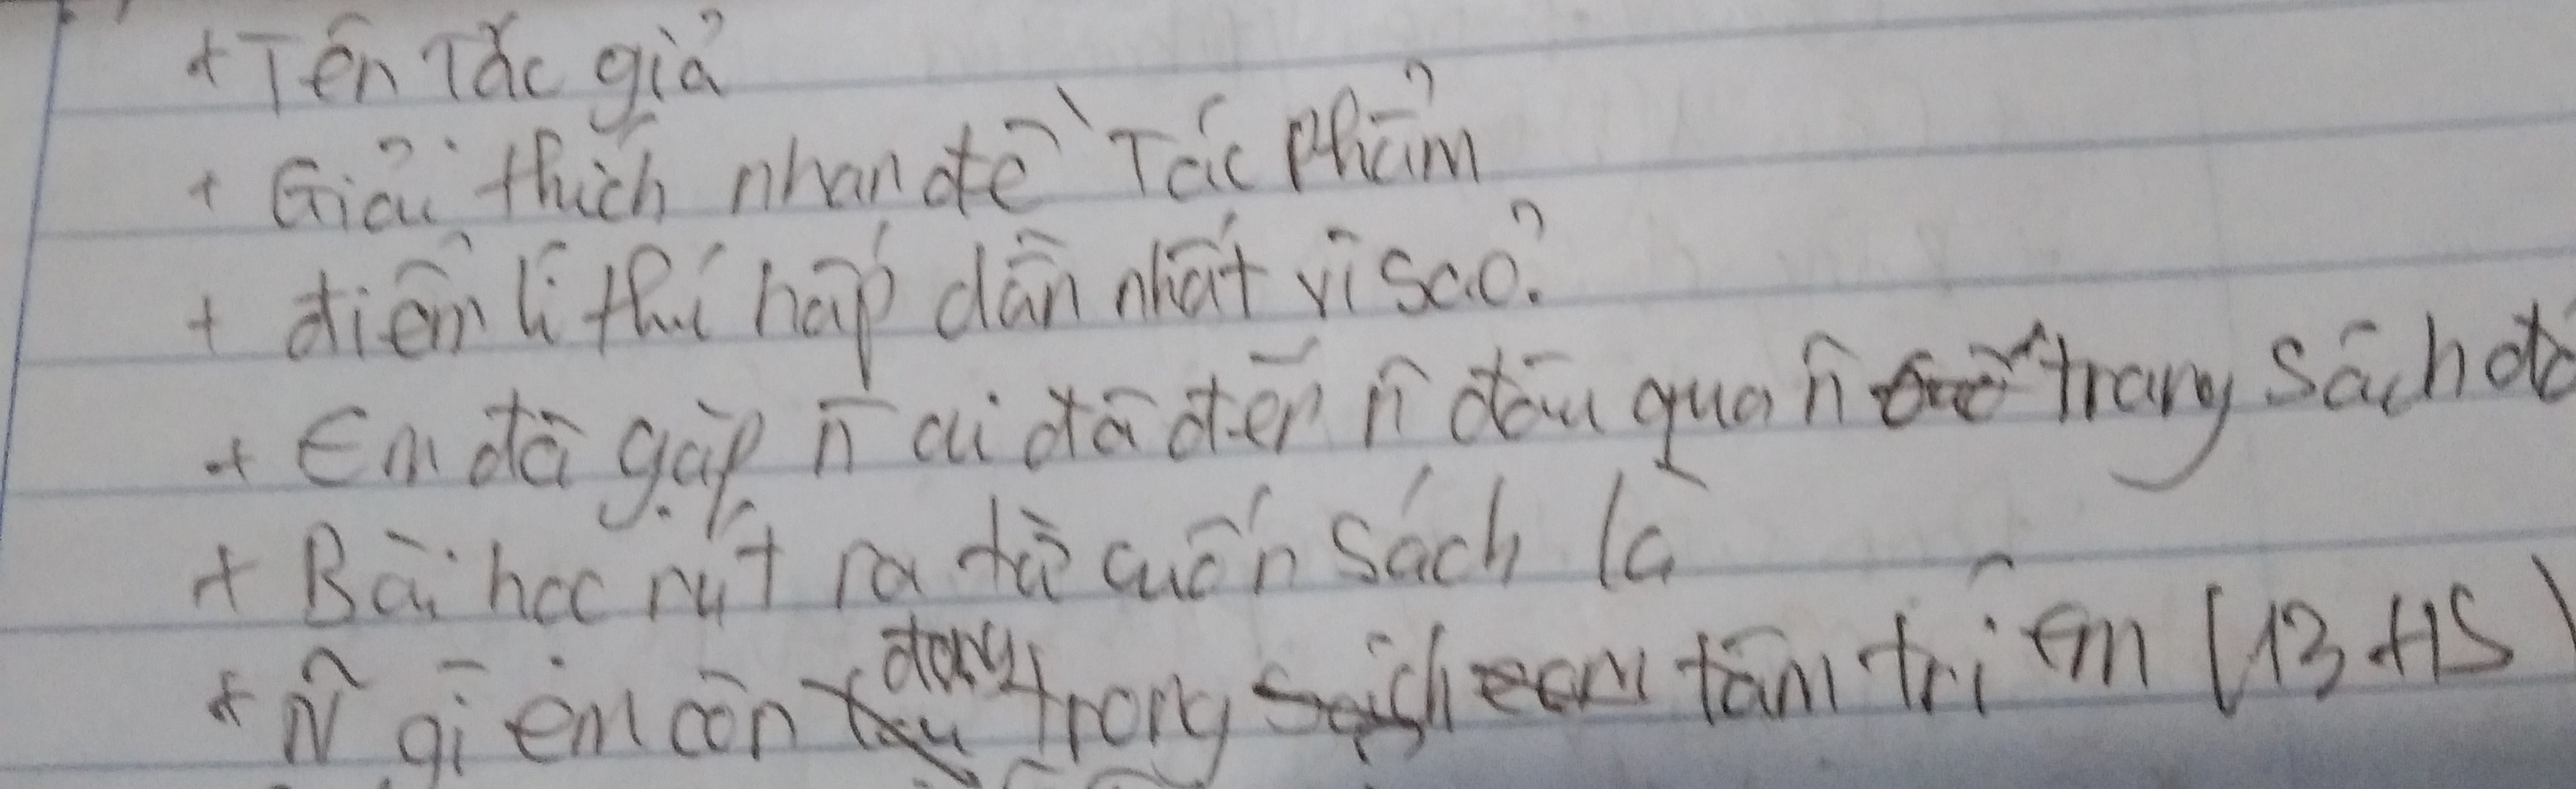 + Tên Tác giả
+ Giải thích nhan đề Tác phẩm
+ điểm lí thú hấp dẫn nhất vì sao?
+ Em đã gặp n̄ ai đã đến n̄ đâu qua n̄ trang sách đó
+ Bài học rút ra từ cuốn sách là
+ N̄ gì em còn đọng trong tâm trí em (13 HS)